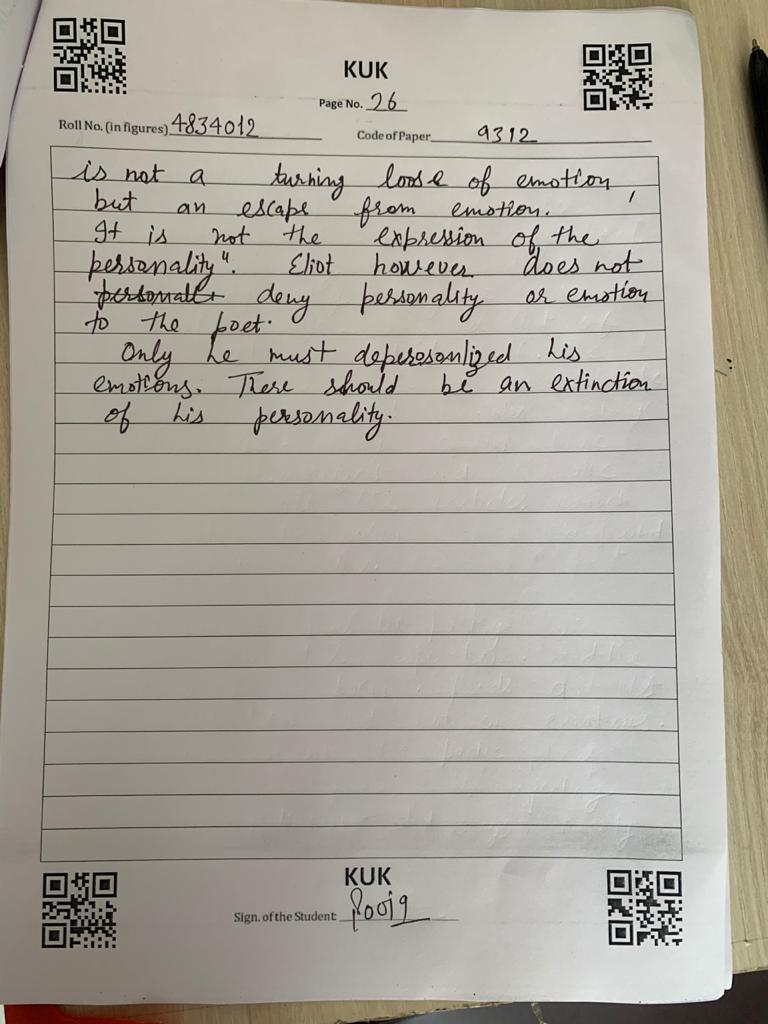 KUK
Page No. 26
Roll No. (in figures) 4834012 Code of Paper 9312
is not a turning loose of emotion,
but an escape from emotion.
It is not the expression of the
personality". Eliot however does not
deny personality or emotion
to the poet.
Only he must depersonlized his
emotions. There should be an extinction
of his personality.
KUK
Sign. of the Student